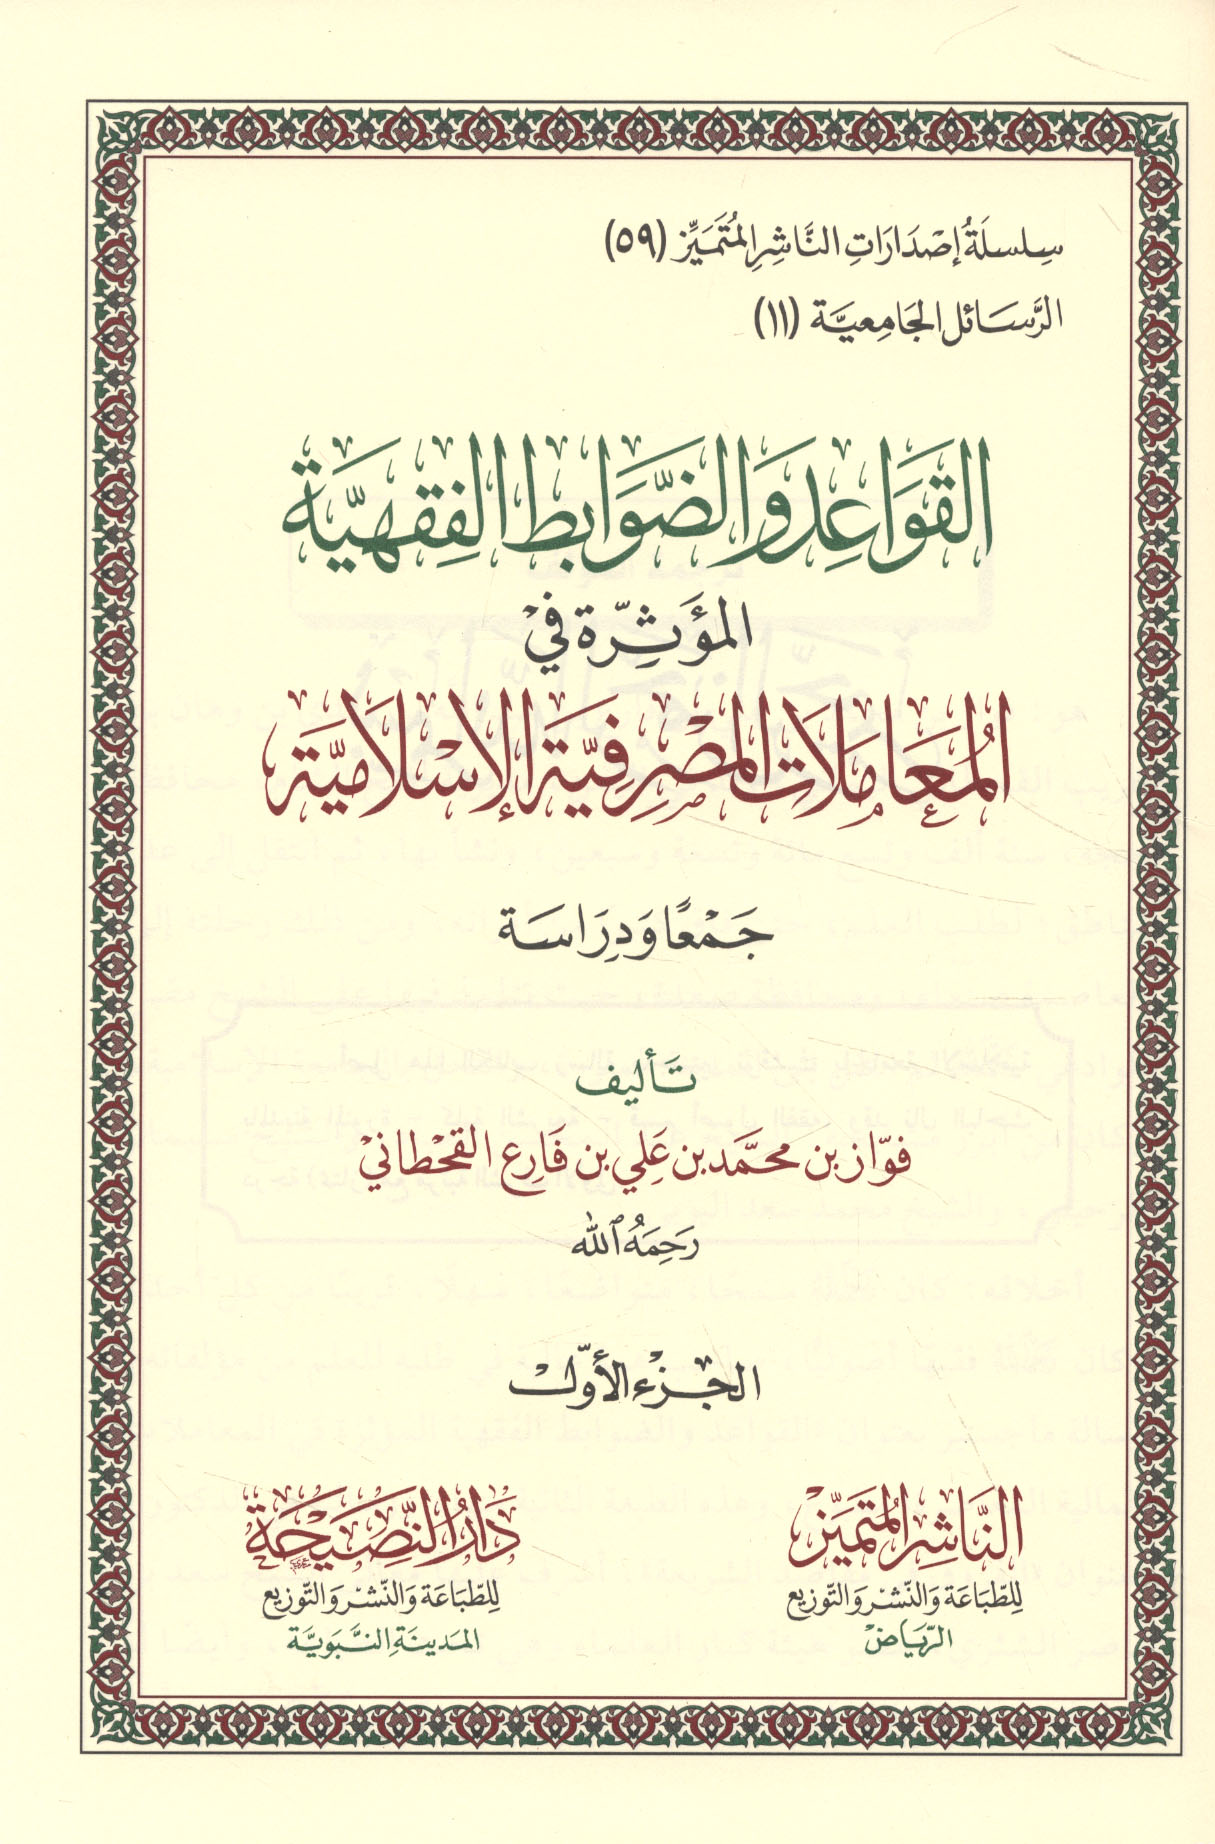 سِلسلَةُ إصْدَارَاتِ النَّاشِرِ المُتَمَيِّزِ (٥٩)
الرَّسَائل الجَامِعيَّة (١١)
القَوَاعِد وَالضَّوَابِط الفِقهيَّة
المؤَثِّرة فيْ
المُعَامَلَات المَصْرِفيَّة الإسْلَاميَّة
جَمْعًا وَدِرَاسَة
تَأليف
فوَّاز بن محمَّد بن عَلي بن فَارِع القحْطانيْ
رَحِمَهُ ٱللَّه
الجزْء الأوَّل
النَّاشِر المُتَميِّزْ
للطِّبَاعَة وَالنَّشْر وَالتَّوزيع
الرِّيَاض
دَارُ النَّصِيْحَة
للطِّبَاعَة وَالنَّشْر وَالتَّوزيع
المَدينَة النَّبَويَّة